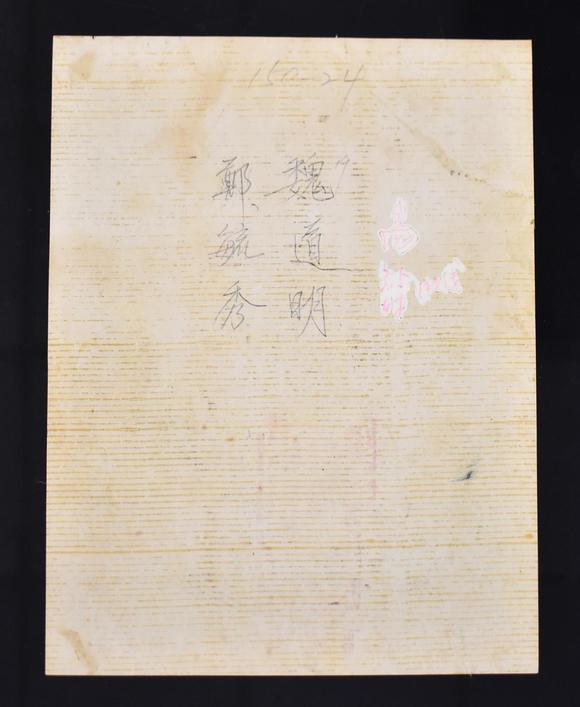 150-24
魏道明
鄭毓秀